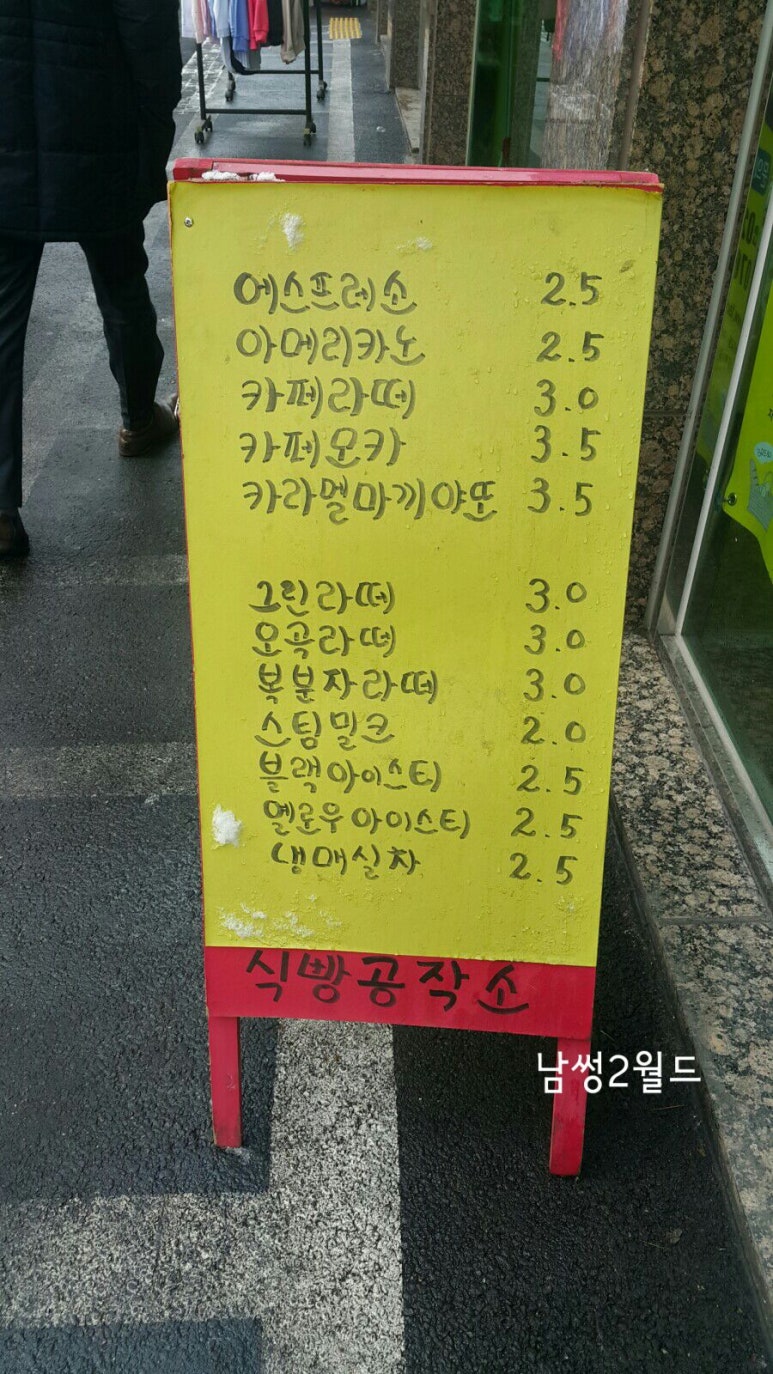 에스프레소 2.5
아메리카노 2.5
카페라떼 3.0
카페모카 3.5
카라멜마끼야또 3.5
그린라떼 3.0
오곡라떼 3.0
복분자라떼 3.0
스팀밀크 2.0
블랙아이스티 2.5
옐로우아이스티 2.5
냉매실차 2.5
식빵공작소
남썽2월드